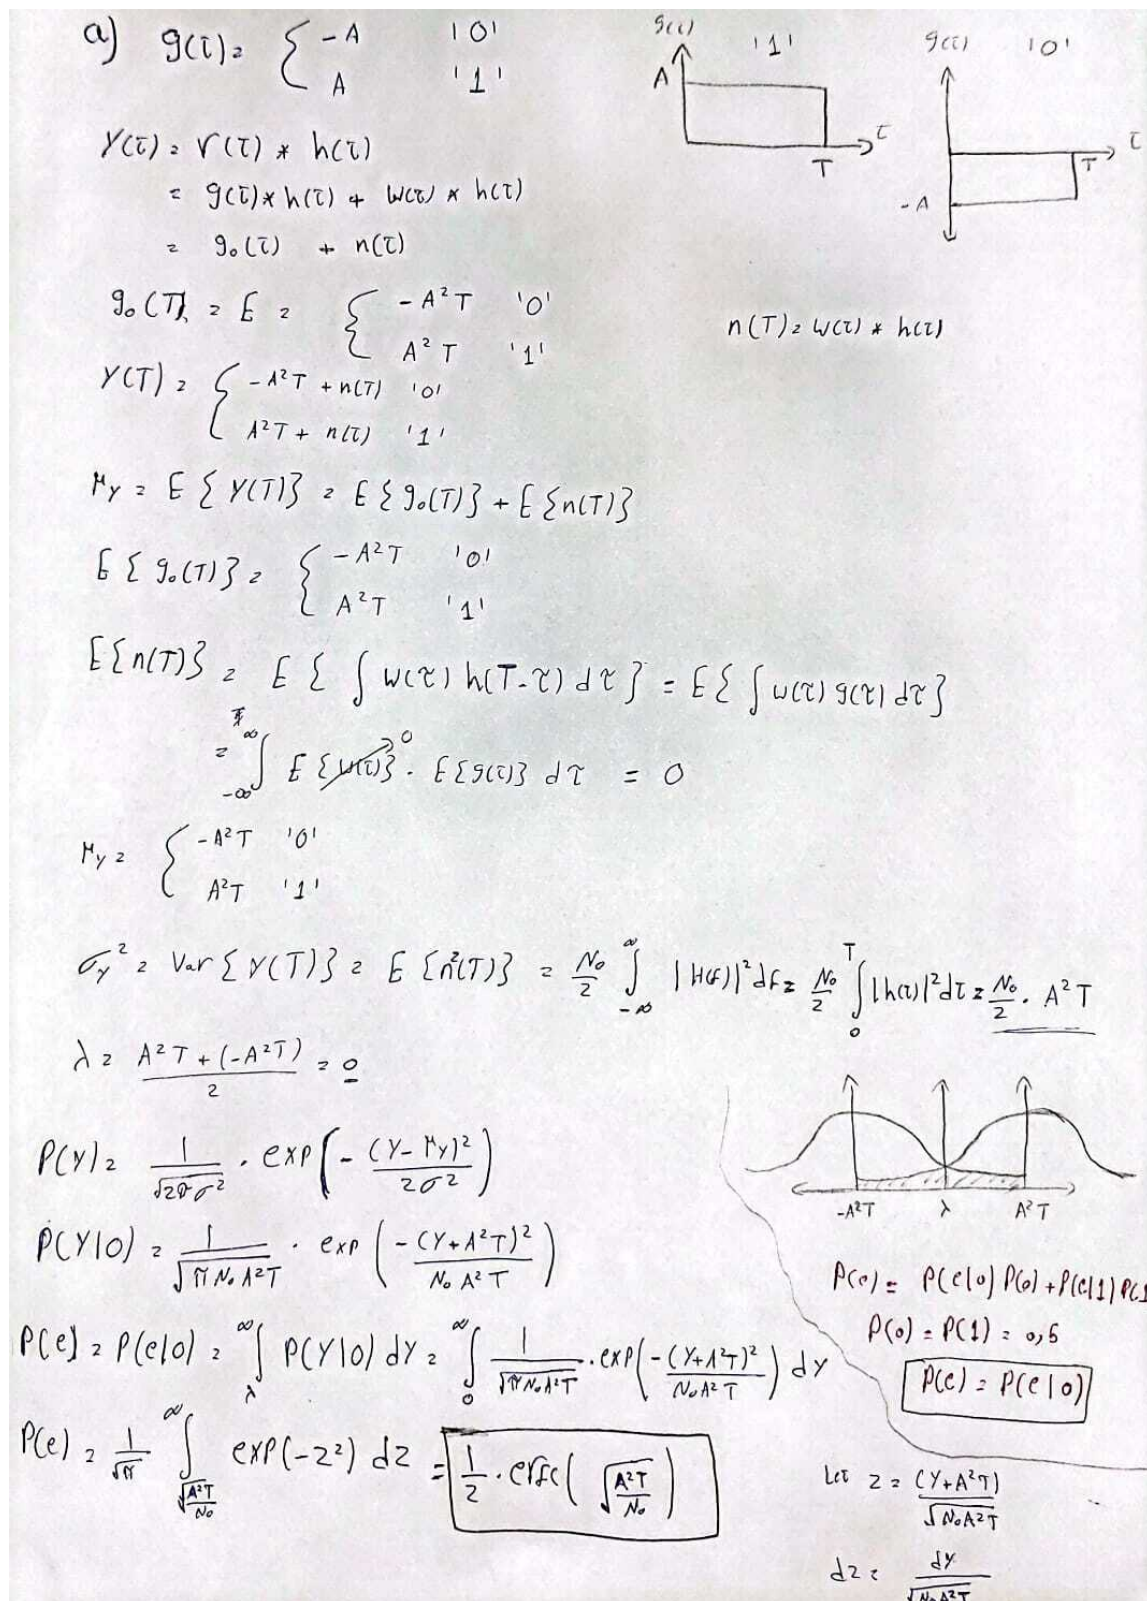 a) g(t) = { -A '0'
A '1'
g(t) '1'
A
T
t
g(t) '0'
T
t
-A
Y(t) = r(t) * h(t)
= g(t) * h(t) + w(t) * h(t)
= g₀(t) + n(t)
g₀(T) = E = { -A²T '0'
A²T '1'
n(T) = w(t) * h(t)
Y(T) = { -A²T + n(T) '0'
A²T + n(t) '1'
μ_y = E{Y(T)} = E{g₀(T)} + E{n(T)}
E{g₀(T)} = { -A²T '0'
A²T '1'
E{n(T)} = E{∫ w(τ) h(T-τ) dτ} = E{∫ w(τ) g(τ) dτ}
= ∫_{-∞}^{∞} E{w(τ)}→0 · E{g(τ)} dτ = 0
μ_y = { -A²T '0'
A²T '1'
σ_y² = Var{Y(T)} = E{n²(T)} = N₀/2 ∫_{-∞}^{∞} |H(f)|² df = N₀/2 ∫_0^T |h(t)|² dt = N₀/2 · A²T
λ = (A²T + (-A²T))/2 = 0
-A²T λ A²T
P(Y) = 1/√(2πσ²) · exp(-(Y-μ_y)²/2σ²)
P(Y|0) = 1/√(πN₀A²T) · exp(-(Y+A²T)²/N₀A²T)
P(e) = P(e|0) P(0) + P(e|1) P(1
P(0) = P(1) = 0,5
P(e) = P(e|0)
P(e) = P(e|0) = ∫_λ^∞ P(Y|0) dY = ∫_0^∞ 1/√(πN₀A²T) · exp(-(Y+A²T)²/N₀A²T) dY
P(e) = 1/√π ∫_{√(A²T/N₀)}^∞ exp(-z²) dz = 1/2 · erfc(√(A²T/N₀))
Let z = (Y+A²T)/√(N₀A²T)
dz = dY/√(N₀A²T)